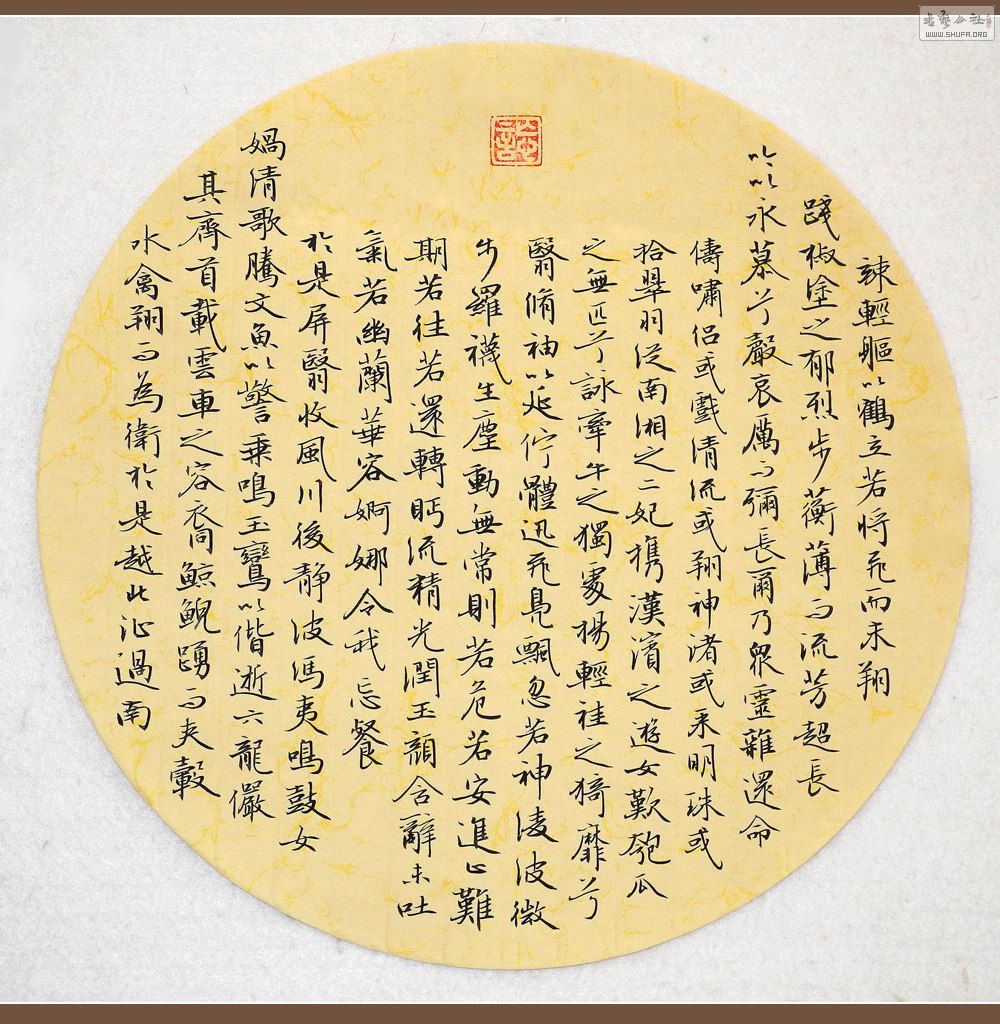 竦輕軀以鶴立若將飛而未翔
踐椒塗之郁烈步蘅薄而流芳超長
吟以永慕兮聲哀厲而彌長爾乃眾靈雜還命
儔嘯侶或戲清流或翔神渚或采明珠或
拾翠羽從南湘之二妃攜漢濱之遊女歎匏瓜
之無匹兮詠牽牛之獨處揚輕袿之猗靡兮
翳脩袖以延佇體迅飛鳧飄忽若神淩波微
步羅襪生塵動無常則若危若安進止難
期若往若還轉眄流精光潤玉顏含辭未吐
氣若幽蘭華容婀娜令我忘餐
於是屏翳收風川後靜波馮夷鳴鼓女
媧清歌騰文魚以警乘鳴玉鸞以偕逝六龍儼
其齊首載雲車之容裔鯨鯢踴而夾轂
水禽翔而為衛於是越北沚過南
書藝公社
WWW.SHUFA.ORG